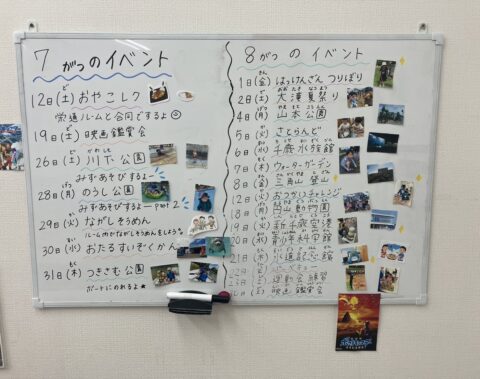 7がつのイベント
12日(土)おやこレク
栄通ルームと合同でするよ☺
19日(土)映画鑑賞会
26日(土)川下公園
みずあそびするよー
28日(月)のうし公園
みずあそびするよー part 2
29日(火)ながしそうめん
ルームの中でながしそうめんをしよう
30日(水)おたるすいぞくかん
31日(木)つきさむ公園
ボートにのれるよ★
8がつのイベント
1日(金)はっけんざん つりぼり
2日(土)大漢夏祭り
4日(月)山本公園
5日(火)さとらんど
6日(水)千歳水族館
7日(木)ウォーターガーデン
8日(金)三角山登山
12日(火)おつかいチャレンジ
18日(月)円山動物園
19日(火)新千歳空港
20日(水)青少年科学館
21日(木)水道記念館
22日(金)バーベキュー
23日(土)運動会練習
30日(土)映画鑑賞会